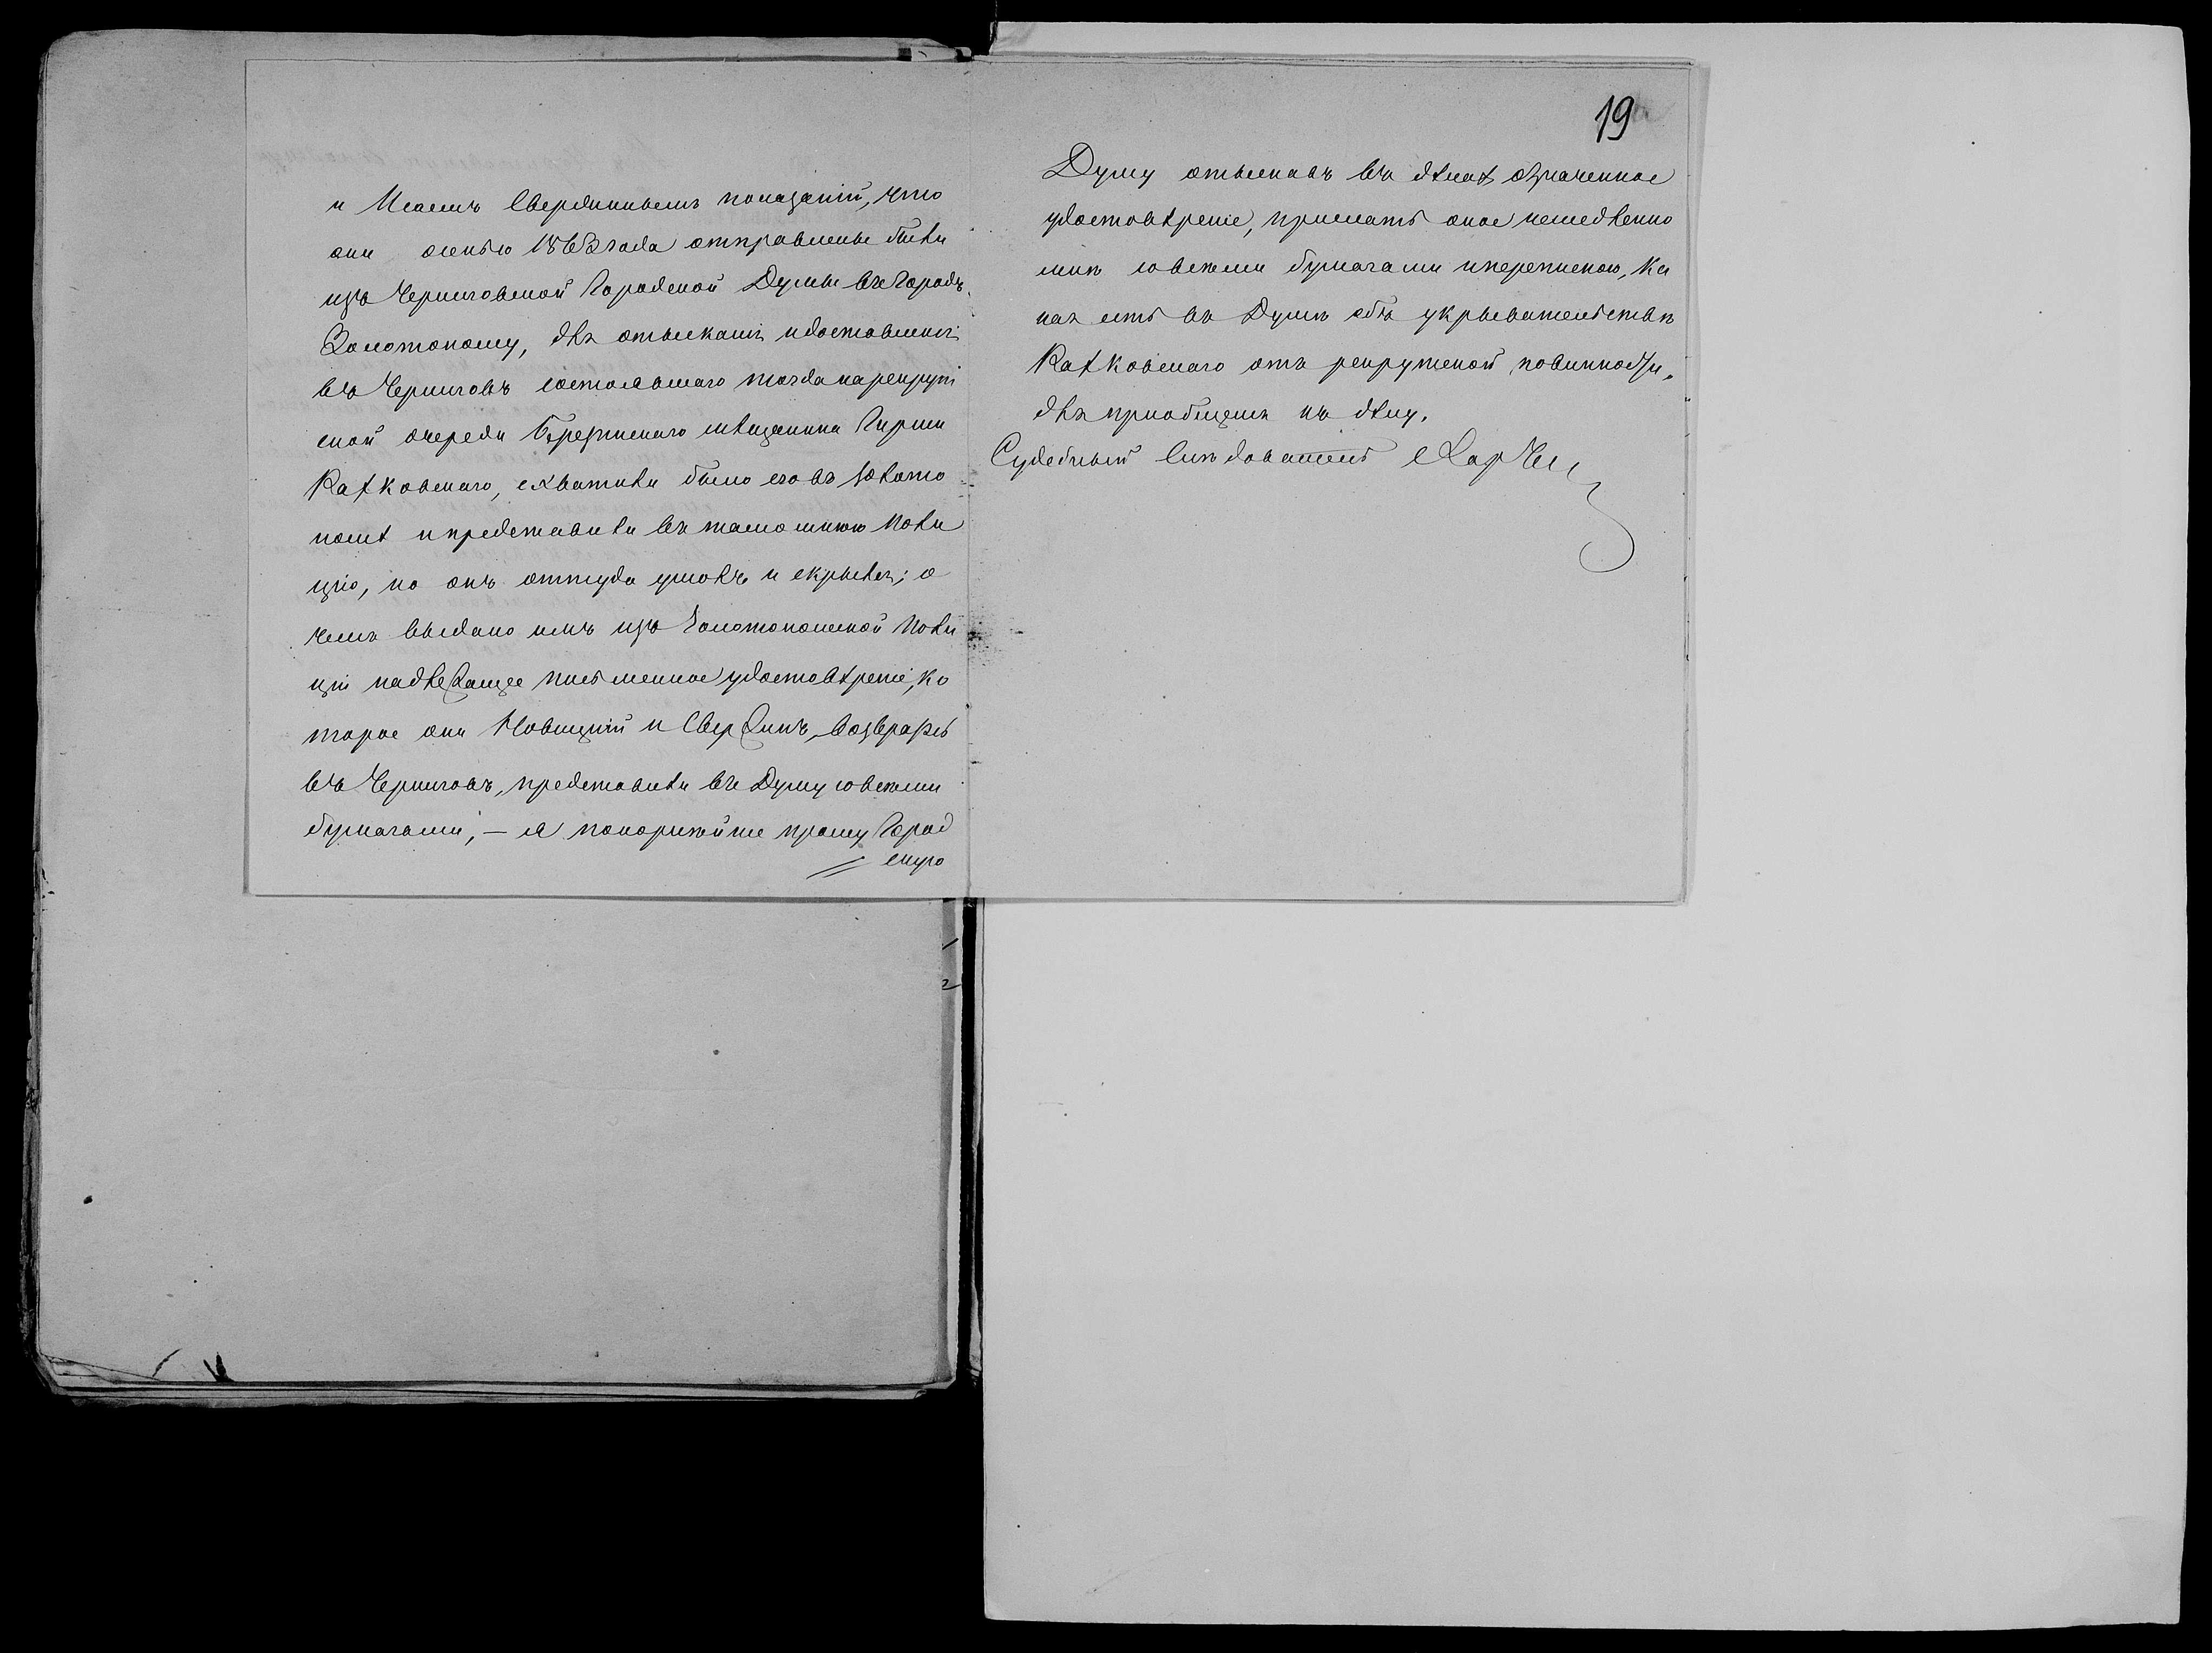 и Исаемъ Свердлинымъ показаній, что
они осенью 1863 года отправлены были
изъ Черниговской Городской Думы въ Городъ
Золотоношу, для отысканія и доставленія
въ Черниговъ состоявшаго тогда на рекрут
ской очереди Березинскаго мѣщанина Гирши
Рахковскаго, схватили было его въ Золото
ношѣ и представили въ тамошнюю Поли
цію, но онъ оттуда ушолъ и скрылся; о
чемъ выдано имъ изъ Золотоношской Поли
ціи надлежащее письменное удостовѣреніе, ко
торое они Новицкій и Свердлинъ, возвратясь
въ Черниговъ, представили въ Думу со всѣми
бумагами, — я покорнѣйше прошу Город
скую
19
Думу отыскавъ въ дѣлахъ означенное
удостовѣреніе, прислать оное немедленно
мнѣ со всѣми бумагами и перепискою, ка
кая есть въ Думѣ объ укрывательствѣ
Рахковскаго отъ рекрутской повинности,
для пріобщенія къ дѣлу.
Судебный Слѣдователь